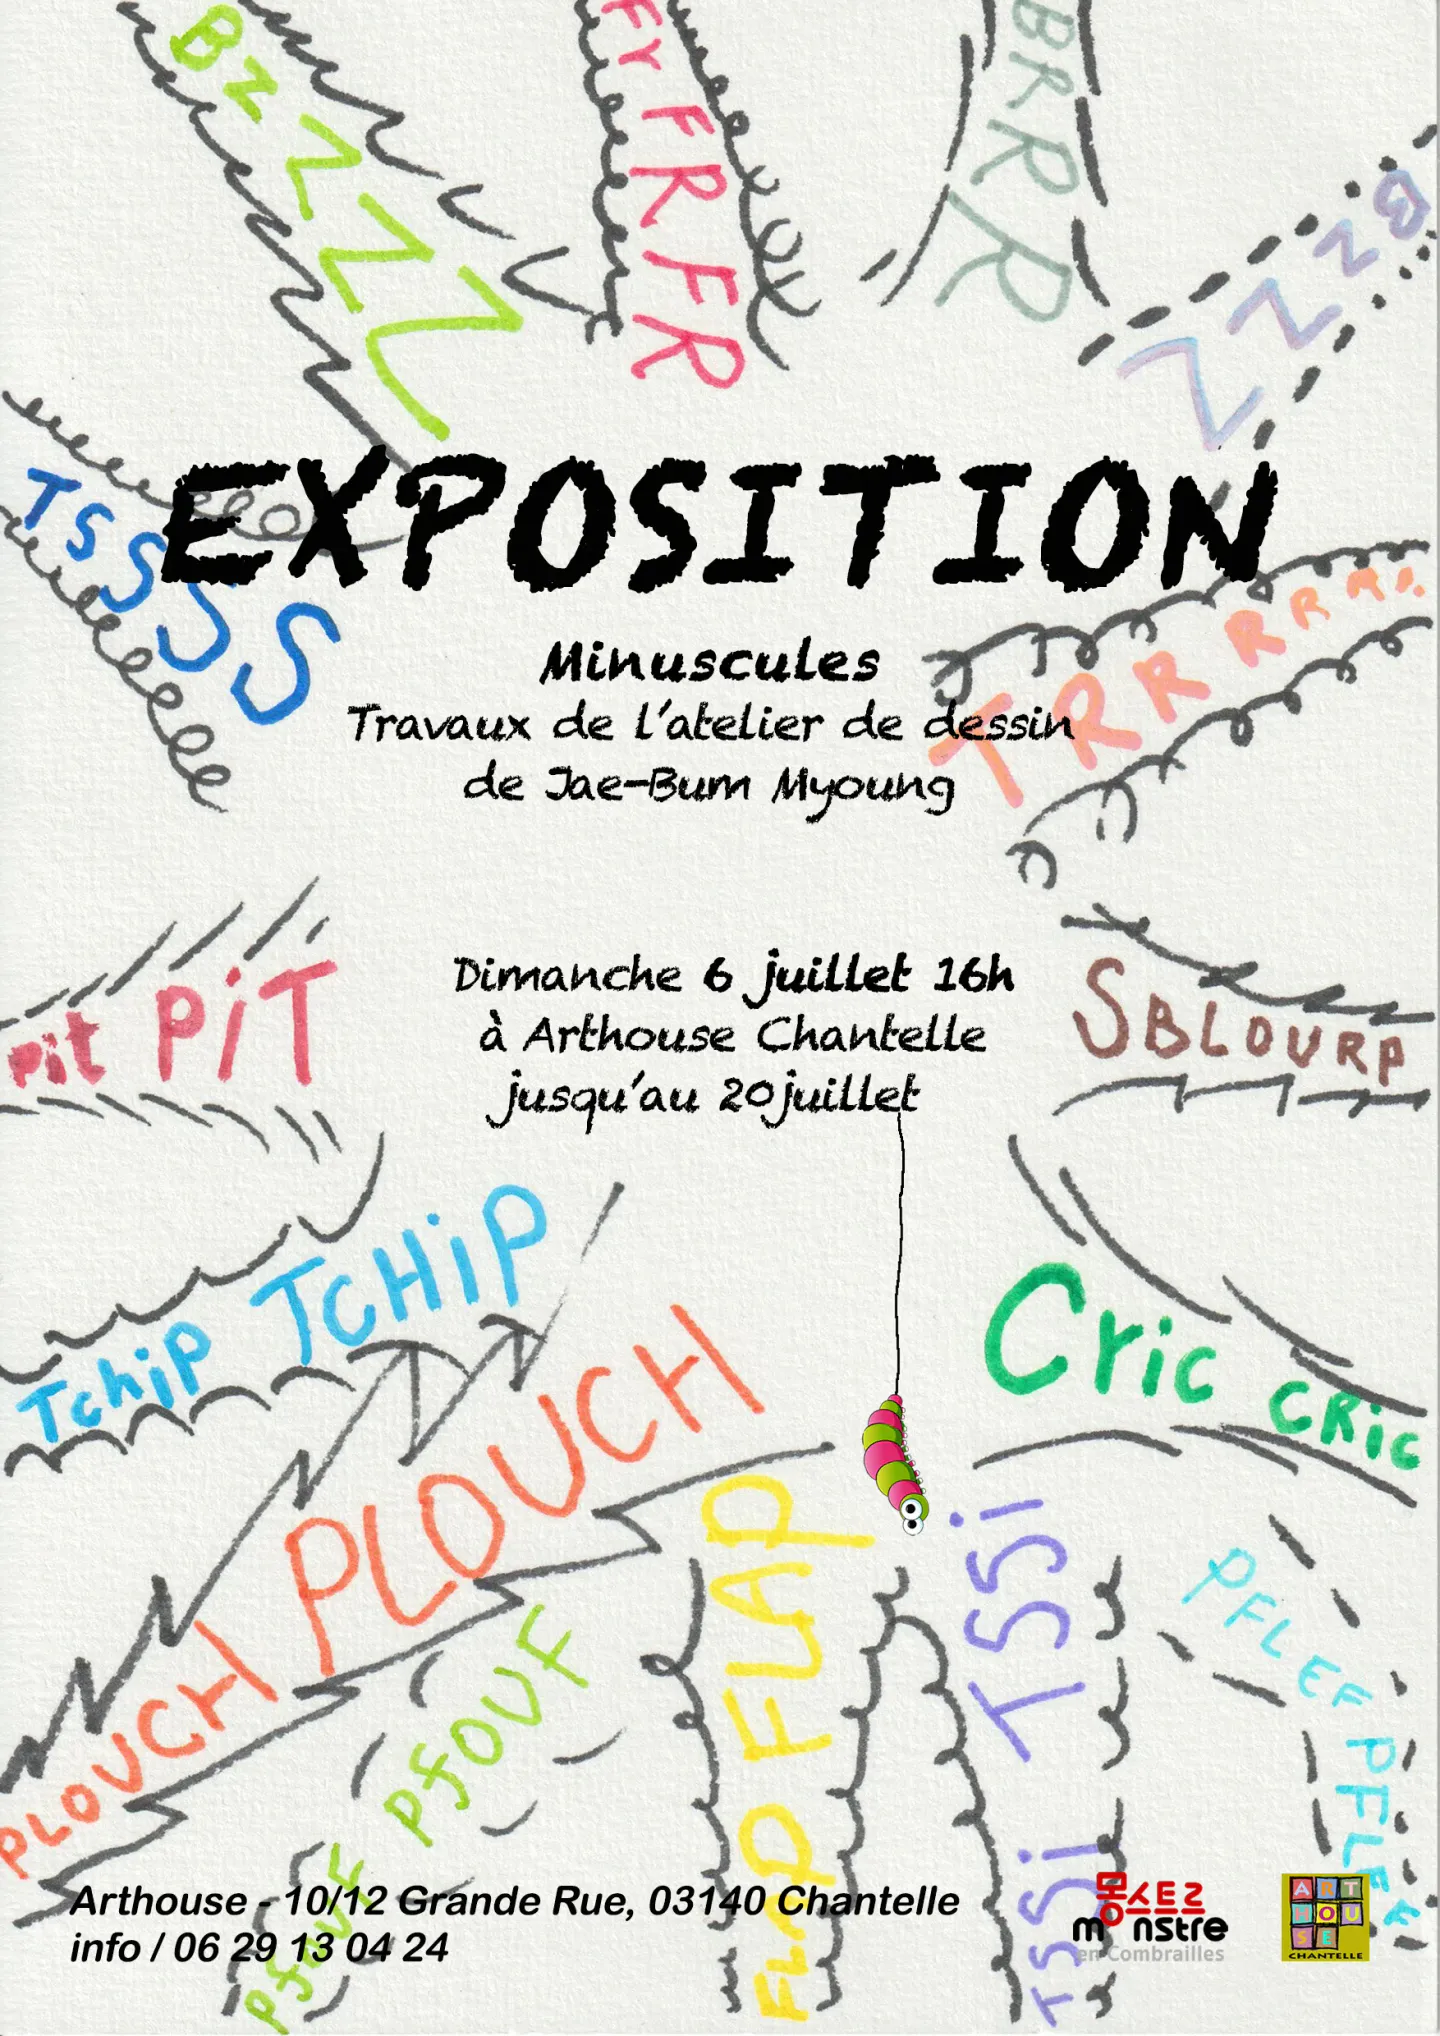 BZZZZ
FY FRFR
BRRRR
BZZZZ
TSSSS
EXPOSITION
Minuscules
Travaux de l'atelier de dessin
de Jae-Bum Myoung
TRRRRRR
pit PiT
Dimanche 6 juillet 16h
à Arthouse Chantelle
jusqu'au 20juillet
SBLOURP
Tchip TCHiP
Cric CRic
PLOUCH PLOUCH
FLAP FLAP
TSSi TSSi
PFLEF PFLEF
PfOUF PfOUF
Arthouse - 10/12 Grande Rue, 03140 Chantelle
info / 06 29 13 04 24
몽스트르
monstre
en Combrailles
ART
HOU
SE
CHANTELLE